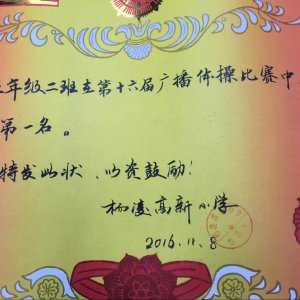 年级二班在第十六届广播体操比赛中
第一名。
特发此状、以资鼓励!
杨凌高新小学
2016.11.8